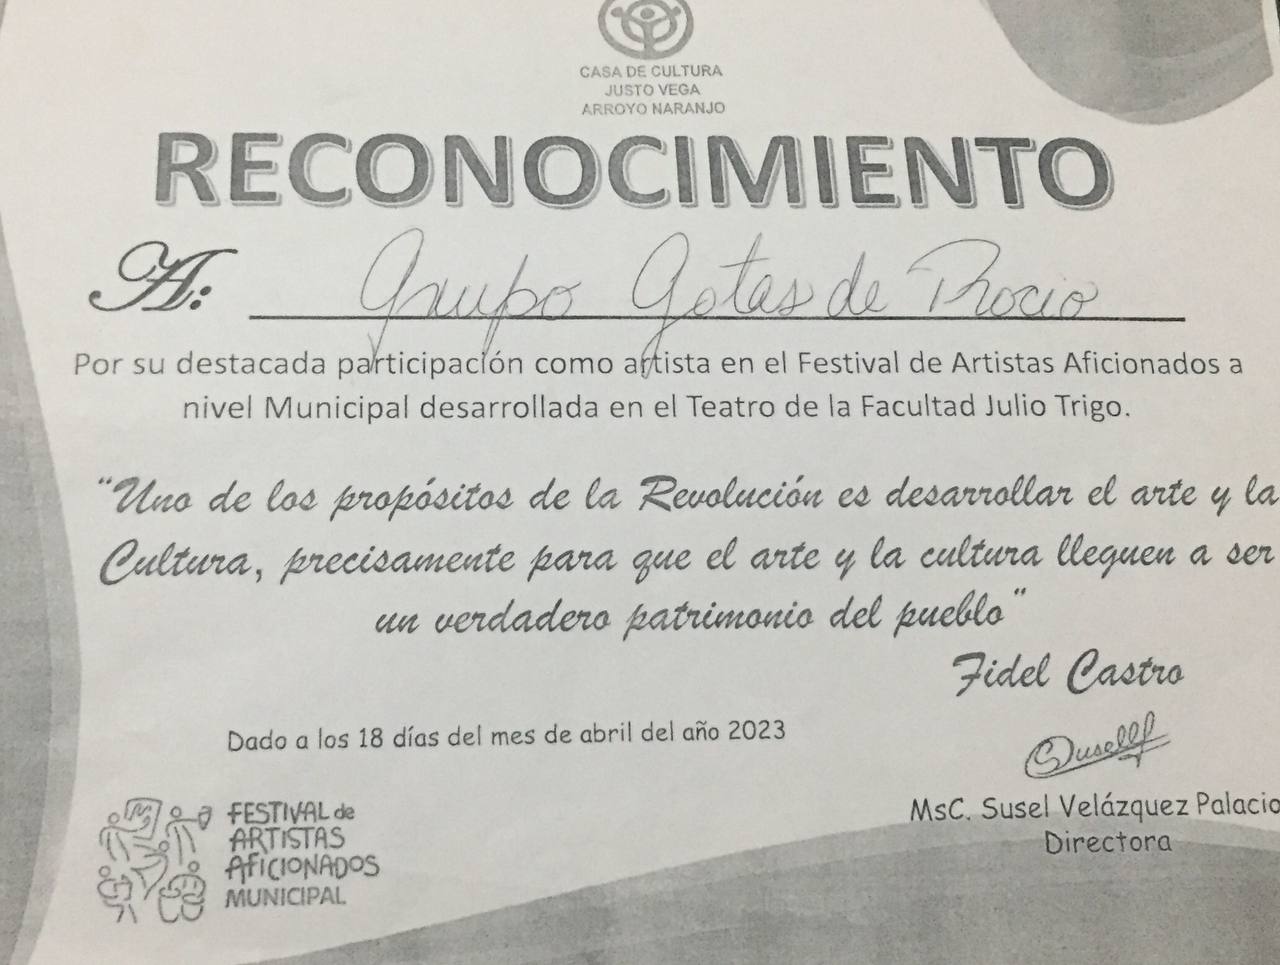 CASA DE CULTURA
JUSTO VEGA
ARROYO NARANJO
RECONOCIMIENTO
A: Grupo Gotas de Rocio
Por su destacada participación como artista en el Festival de Artistas Aficionados a
nivel Municipal desarrollada en el Teatro de la Facultad Julio Trigo.
"Uno de los propósitos de la Revolución es desarrollar el arte y la
Cultura, precisamente para que el arte y la cultura lleguen a ser
un verdadero patrimonio del pueblo"
Fidel Castro
Dado a los 18 días del mes de abril del año 2023
MsC. Susel Velázquez Palacio
Directora
FESTIVAL de
ARTISTAS
AFICIONADOS
MUNICIPAL